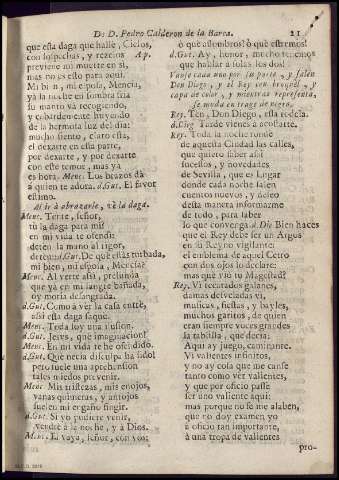 De D. Pedro Calderon de la Barca. 21
que esta daga que hallè, Cielos,
con sospechas, y rezelos Ap.
previene mi muerte en sì,
mas no es esto para aqui.
Mi bien, mi esposa, Mencìa,
yà la noche en sombra fria
su manto và recogiendo,
y cobardemente huyendo
de la hermosa luz del dia:
mucho siento, claro està,
el dexarte en esta parte,
por dexarte, y por dexarte
con este temor, mas yà
es hora. Menc. Los brazos dà
à quien te adora. d.Gut. El favor
estimo.
Al ir à abrazarle, vè la daga.
Menc. Tente, señor,
tù la daga para mì?
en mi vida te ofendì:
detèn la mano al rigor,
detèn. d.Gut. De què estàs turbada,
mi bien, mi esposa, Mencìa?
Menc. Al verte assi, presumìa
que yà en mi sangre bañada,
oy moria desangrada.
d.Gut. Como à vèr la casa entrè,
assi esta daga saquè.
Menc. Toda soy una ilusion.
d.Gut. Jesvs, què imaginacion!
Menc. En mi vida te he ofendido.
d.Gut. Què necia disculpa ha sido!
pero suele una aprehension
tales miedos prevenir.
Menc. Mis tristezas, mis enojos,
vanas quimeras, y antojos
suelen mi engaño fingir.
d.Gut. Si yo pudiere venir,
vendrè à la noche, y à Dios.
Menc. El vaya, señor, con vos:
ò què assombros! ò què estremos!
d.Gut. Ay, honor, mucho tenemos
que hablar à solas los dos!
Vanse cada uno por su parte, y salen
Don Diego, y el Rey con broquel, y
capa de color, y mientras representa,
se muda en trage de negro.
Rey. Ten, Don Diego, esta rodela.
d.Dieg. Tarde vienes à acostarte.
Rey. Toda la noche rondè
de aquesta Ciudad las calles,
que quiero saber assi
sucessos, y novedades
de Sevilla, que es Lugar
donde cada noche salen
cuentos nuevos, y deseo
desta manera informarme
de todo, para saber
lo que convenga. d.Die. Bien haces
que el Rey debe ser un Argos
en su Reyno vigilante:
el emblema de aquel Cetro
con dos ojos lo declare:
mas què viò tu Magestad?
Rey. Vi recatados galanes,
damas desveladas vi,
musicas, fiestas, y bayles,
muchos garitos, de quien
eran siempre voces grandes
la tablilla, que decia:
Aqui ay juego, caminante.
Vi valientes infinitos,
y no ay cosa que me canse
tanto como vèr valientes,
y que por oficio passe
ser uno valiente aqui:
mas porque no se me alaben,
que no doy examen yo
à oficio tan importante,
à una tropa de valientes
pro-